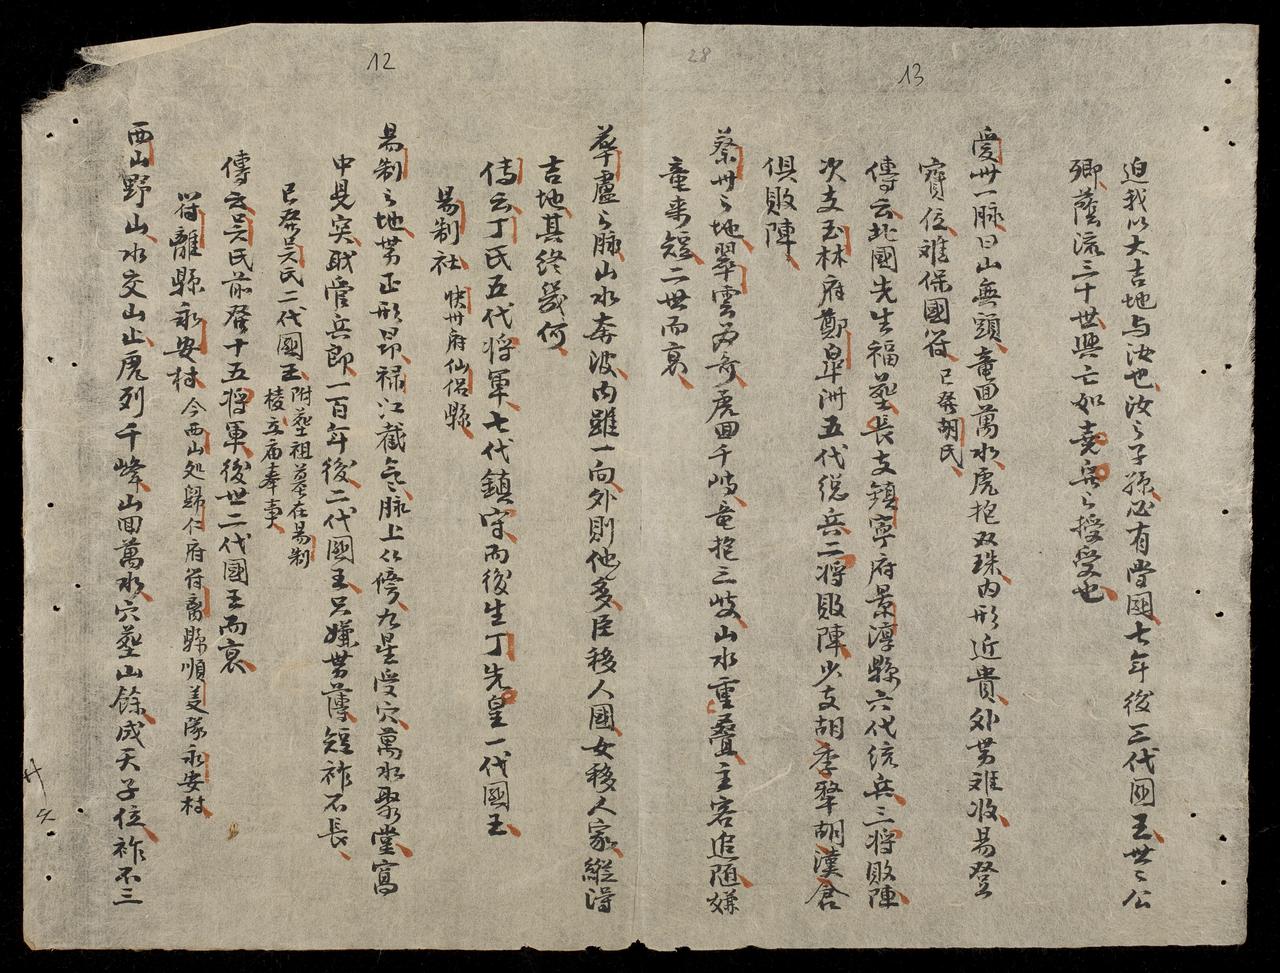 13
28
12
迫我以大吉地与汝也汝之子孫必有當國七年後三代國王世〻公
卿蔭流三十世興亡如堯舜之授受也
愛卅一脉曰山無頭竜面萬水虎抱双珠内形近貴外势难收易登
寳位难保國符已發胡氏
傳云北國先生福塟長支鎮寧府景淳縣六代统兵三将敗陣
次支玉林府鄭皐洲五代総兵二将敗陣少支胡季犛胡漢倉
俱敗陣
蔡卅之地翠雲為奇虎回千岐竜抱三岐山水重叠主客追随嫌
竜来短二世而衰
華盧之脉山水奔波内雖一向外則他多臣移人國女移人家縱得
吉地其終幾何
傳云丁氏五代将軍七代鎮守而後生丁先皇一代國王
易制社 快州府仙侣縣
易制之地势正形昂禄江截氣脉上公傍九星受穴萬水聚堂寫
中見突戢管兵郎一百年後二代國王只嫌势薄短祚不長
已發吴氏二代國王 附塟祖墓在易制
棱立庙奉事
傳云吴氏前發十五将軍後世二代國王而衰
符離縣永安村 今西山处歸仁府符离縣順美隊永安村
西山野山水交山止虎列千峰山回萬水穴塟山餘成天子位祚不三